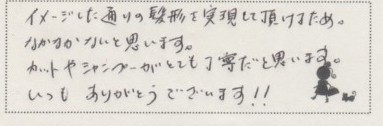 イメージした通りの髪形を実現して頂けるため。
なかなかないと思います。
カットやシャンプーがとても丁寧だと思います。
いつも ありがとうございます!!